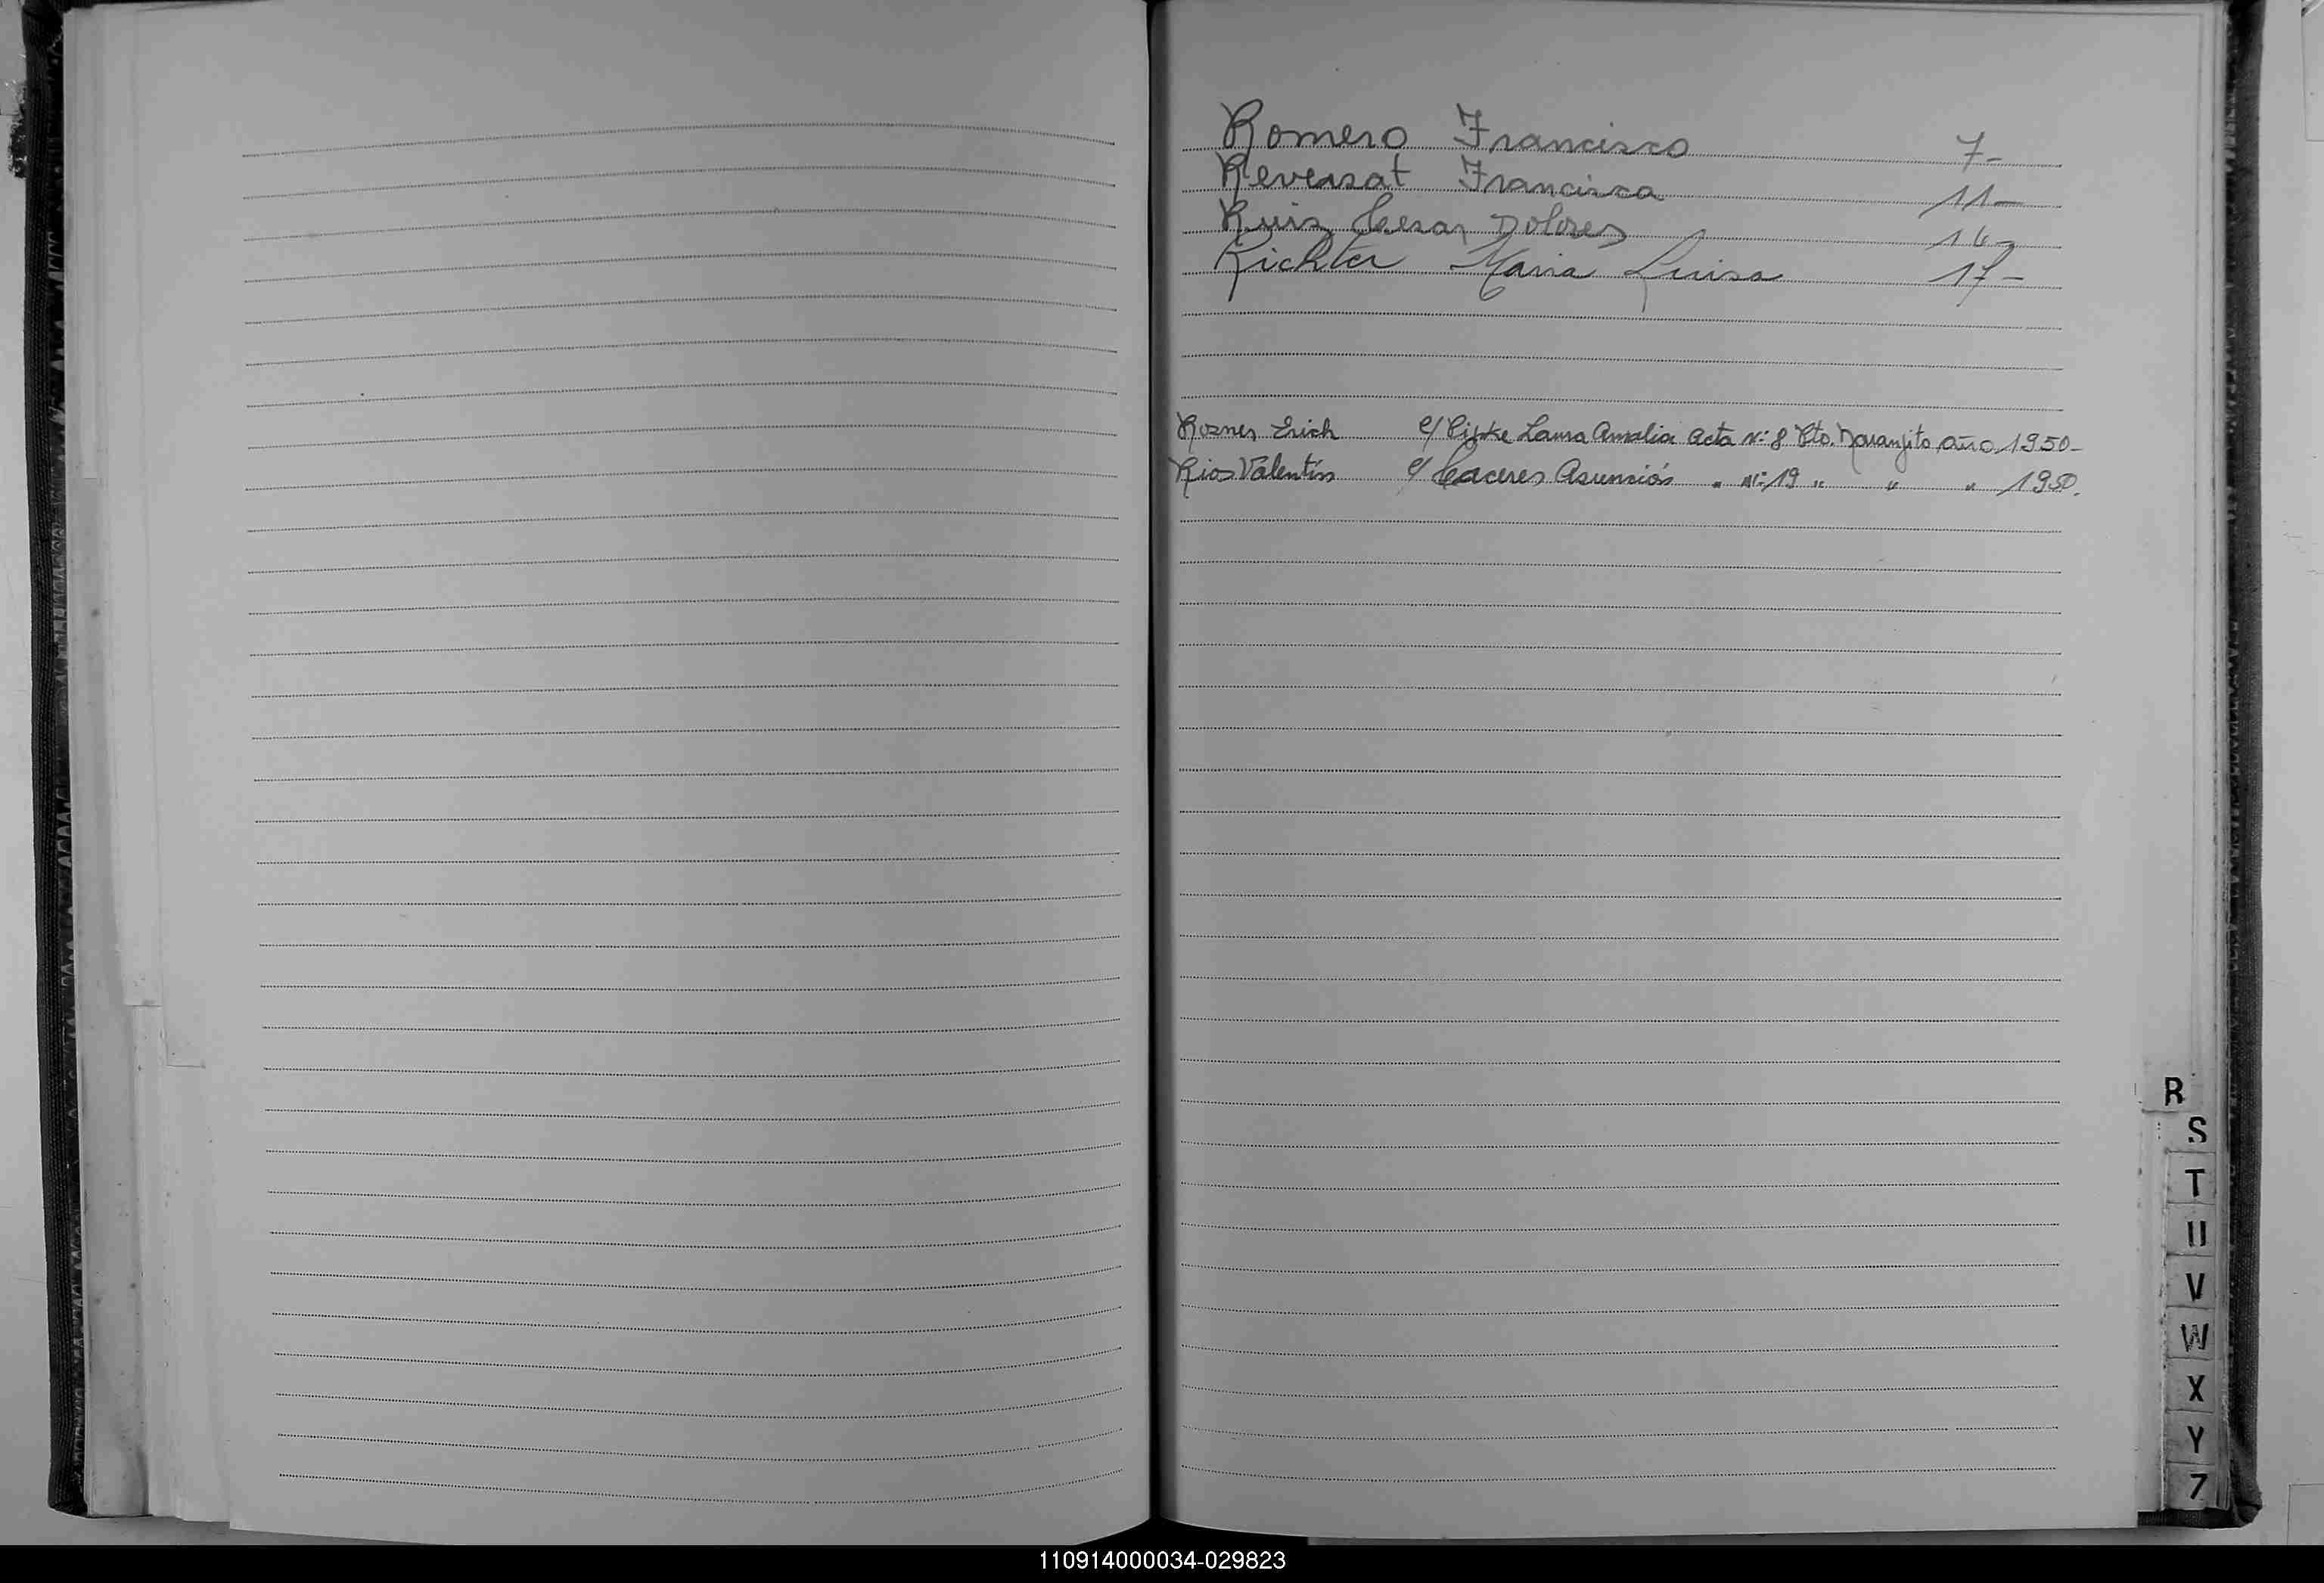 Romero Francisco 7-
Reversat Francisca 11-
Ruiz Cesar Dolores 16-
Richter Maria Luisa 17-
Rosner Erich c/ Lipke Laura Amalia Acta Nº 8 Pto. Naranjito año 1950-
Rios Valentín c/ Caceres Asunción " Nº 19 " " " 1950.
R
S
T
U
V
W
X
Y
Z
110914000034-029823